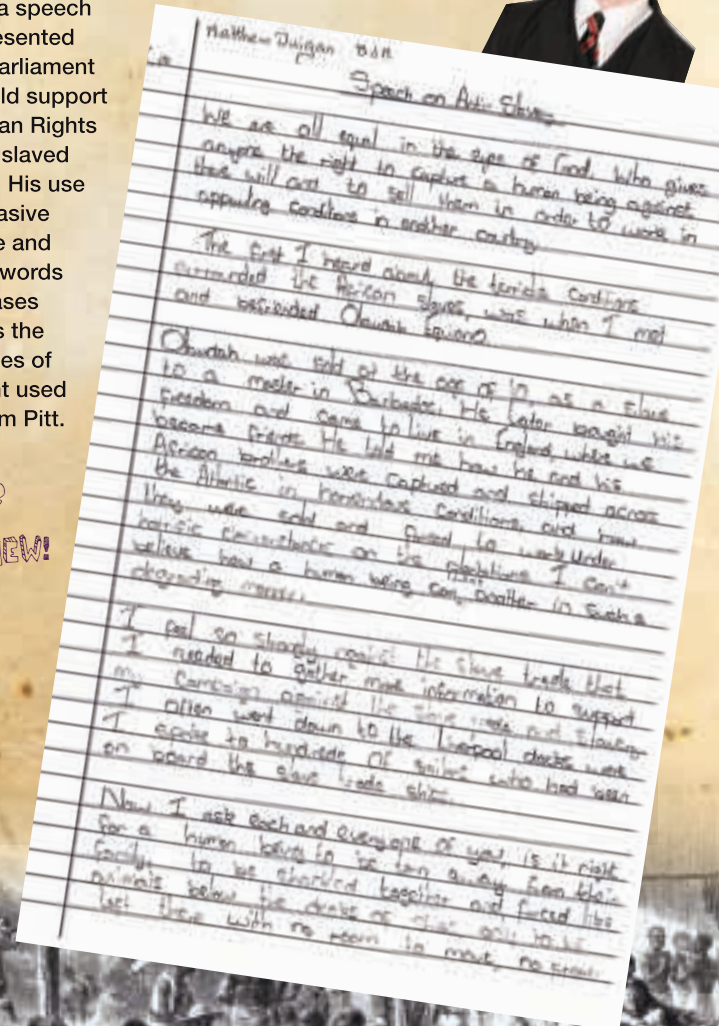 a speech
esented
arliament
ld support
an Rights
slaved
His use
asive
e and
words
ases
s the
es of
t used
m Pitt.
?
EW!
Matthew
Speech on Anti Slave
We are all equal in the eyes of God. Who gives
anyone the right to capture a human being against
their will and to sell them in order to work in
appauling conditions in another country
The first I heard about the terrible conditions
surrounded the African slaves, was when I met
and befriended Olaudah Equiano.
Olaudah was sold at the age of as a slave
to a master in Barbados. He later bought his
freedom and came to live in England where we
became friends. He told me how he and his
African brothers were captured and shipped across
the Atlantic in horrendous conditions and how
they were sold and forced to work under
horrific circumstances on the plantations I can't
believe how a human being can another in such a
degrading manner.
I feel so strongly against the slave trade that
I needed to gather more information to support
my campaign against the slave trade and slavery
I often went down to the Liverpool docks were
I spoke to hundreds of sailors who had been
on board the slave trade ship.
Now I ask each and everyone of you, is it right
for a human being to be torn away from their
family, to be together and forced like
animals below the of only to be
left there with no room to move, no